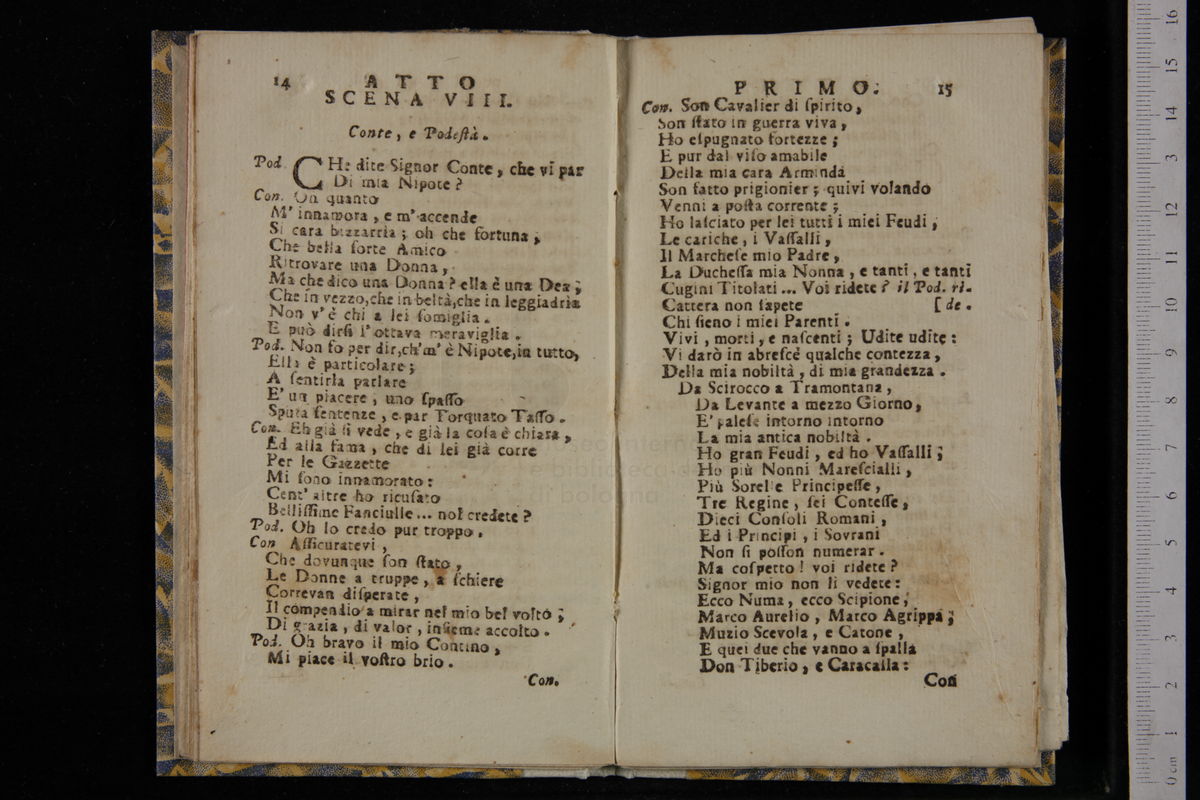 14 ATTO
SCENA VIII.
Conte, e Podeſtà.
Pod. CHe dite Signor Conte, che vi par
Di mia Nipote?
Con. On quanto
M' innamora, e m' accende
Si cara bizzarria; oh che fortuna;
Che bella ſorte Amico
Ritrovare una Donna,
Ma che dico una Donna? ella è una Dea;
Che in vezzo,che in beltà,che in leggiadria
Non v' è chi a lei ſomiglia.
E può dirſi l' ottava meraviglia.
Pod. Non fo per dir,ch'm' è Nipote,in tutto,
Ella è particolare;
A ſentirla parlare
E' un piacere, uno ſpaſſo
Sputa ſentenze, e par Torquato Taſſo.
Con. Eh già ſi vede, e già la coſa è chiara,
Ed alla fama, che di lei già corre
Per le Gazzette
Mi ſono innamorato:
Cent' altre ho ricuſato
Belliſſime Fanciulle... nol credete?
Pod. Oh lo credo pur troppo.
Con Aſſicuratevi,
Che dovunque ſon ſtato,
Le Donne a truppe, a ſchiere
Correvan diſperate,
Il compendio a mirar nel mio bel volto;
Di grazia, di valor, inſieme accolto.
Pod. Oh bravo il mio Contino,
Mi piace il voſtro brio.
Con.
PRIMO. 15
Con. Son Cavalier di ſpirito,
Son ſtato in guerra viva,
Ho eſpugnato fortezze;
E pur dal viſo amabile
Della mia cara Arminda
Son fatto prigionier; quivi volando
Venni a poſta corrente;
Ho laſciato per lei tutti i miei Feudi,
Le cariche, i Vaſſalli,
Il Marcheſe mio Padre,
La Ducheſſa mia Nonna, e tanti, e tanti
Cugini Titolati... Voi ridete? il Pod. ri-
Cattera non ſapete [ de.
Chi ſieno i miei Parenti.
Vivi, morti, e naſcenti; Udite udite:
Vi darò in abreſcè qualche contezza,
Della mia nobiltà, di mia grandezza.
Da Scirocco a Tramontana,
Da Levante a mezzo Giorno,
E' paleſe intorno intorno
La mia antica nobiltà.
Ho gran Feudi, ed ho Vaſſalli;
Ho più Nonni Mareſcialli,
Più Sorelle Principeſſe,
Tre Regine, ſei Conteſſe,
Dieci Conſoli Romani,
Ed i Principi, i Sovrani
Non ſi poſſon numerar.
Ma coſpetto! voi ridete?
Signor mio non li vedete:
Ecco Numa, ecco Scipione,
Marco Aurelio, Marco Agrippa;
Muzio Scevola, e Catone,
E quei due che vanno a ſpalla
Don Tiberio, e Caracalla:
Con